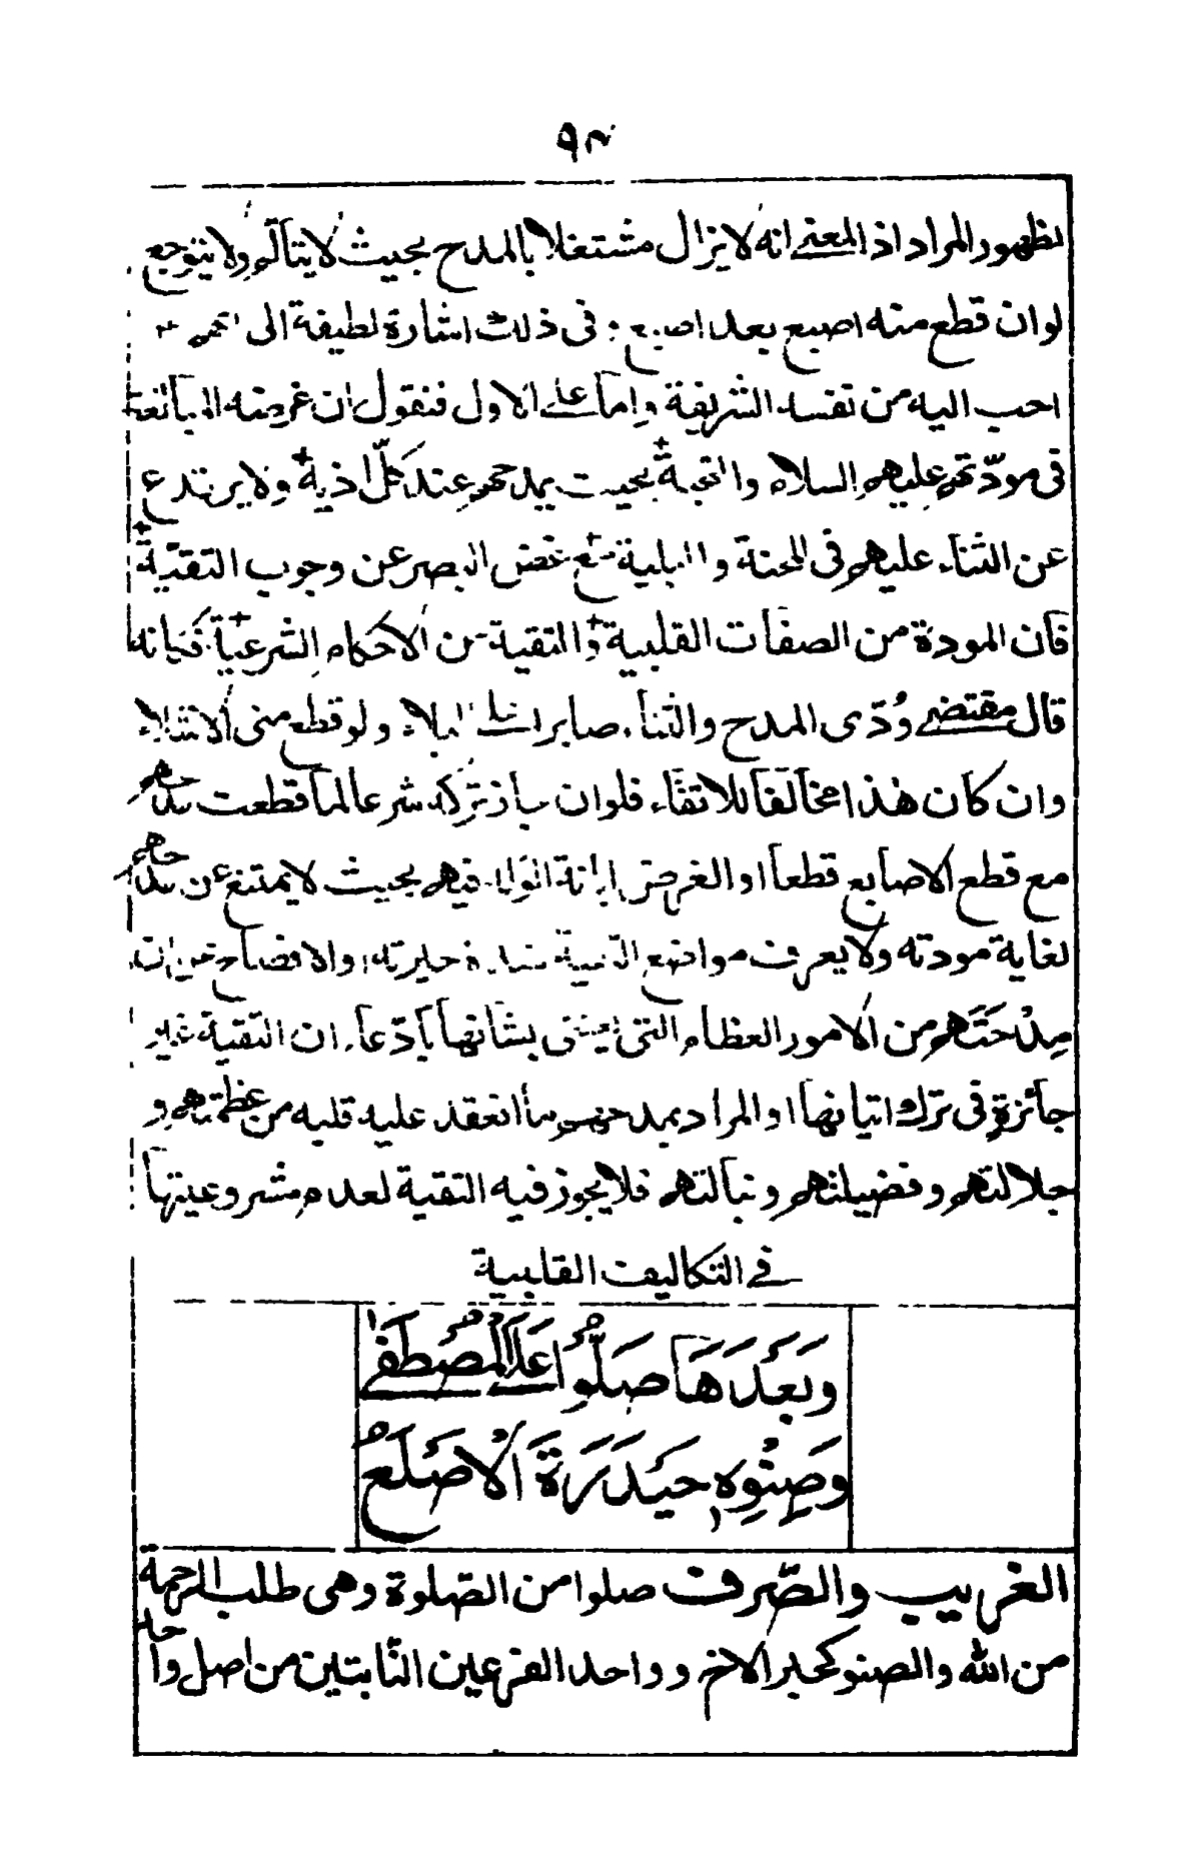 ٩٣
لظهور المراد اذ المعنى انه لا يزال مشتغلا بالمدح بحيث لا يتألم ولا يتوجع
لو ان قطع منه اصبع بعد اصبع في ذلك اشارة لطيفة الى
احب اليه من نفسه الشريفة واما على الاول فنقول ان غرضه المبالغة
في مودتهم عليهم السلام والتحية بحيث يمدحهم عند كل اذية ولا يرتدع
عن الثناء عليهم في المحنة والبلية مع غض البصر عن وجوب التقية
فان المودة من الصفات القلبية والتقية من الاحكام الشرعية فكانه
قال مقتضى ودّى المدح والثناء صابرا على البلاء ولو قطع منى
وان كان هذا مخالفا للاتقاء فلو ان تركه شرعا لما قطعت مدحهم
مع قطع الاصابع قطعا او الغرض فيهم بحيث لا يمتنع عن مدحهم
لغاية مودته ولا يعرف مواضع التقية حيرته او الافصاح
مِدْحَتَهم من الامور العظام التى يعتنى بشانها بادّعاء ان التقية غير
جائزة في ترك اتيانها او المراد بمدحهم ما انعقد عليه قلبه من عظمتهم و
جلالتهم وفضيلتهم ونبالتهم فلا يجوز فيه التقية لعدم مشروعيتها
في التكاليف القلبية
وَبَعْدَهَا صَلُّوا عَلَى المُصْطَفَى
وَصِنْوِهِ حَيْدَرَةَ الْاَصْلَعِ
الغريب والصّرف صلوا من الصّلوة وهى طلب الرحمة
من الله والصنو كحبر الاخ وواحد الفرعين النّابتين من اصل واحد